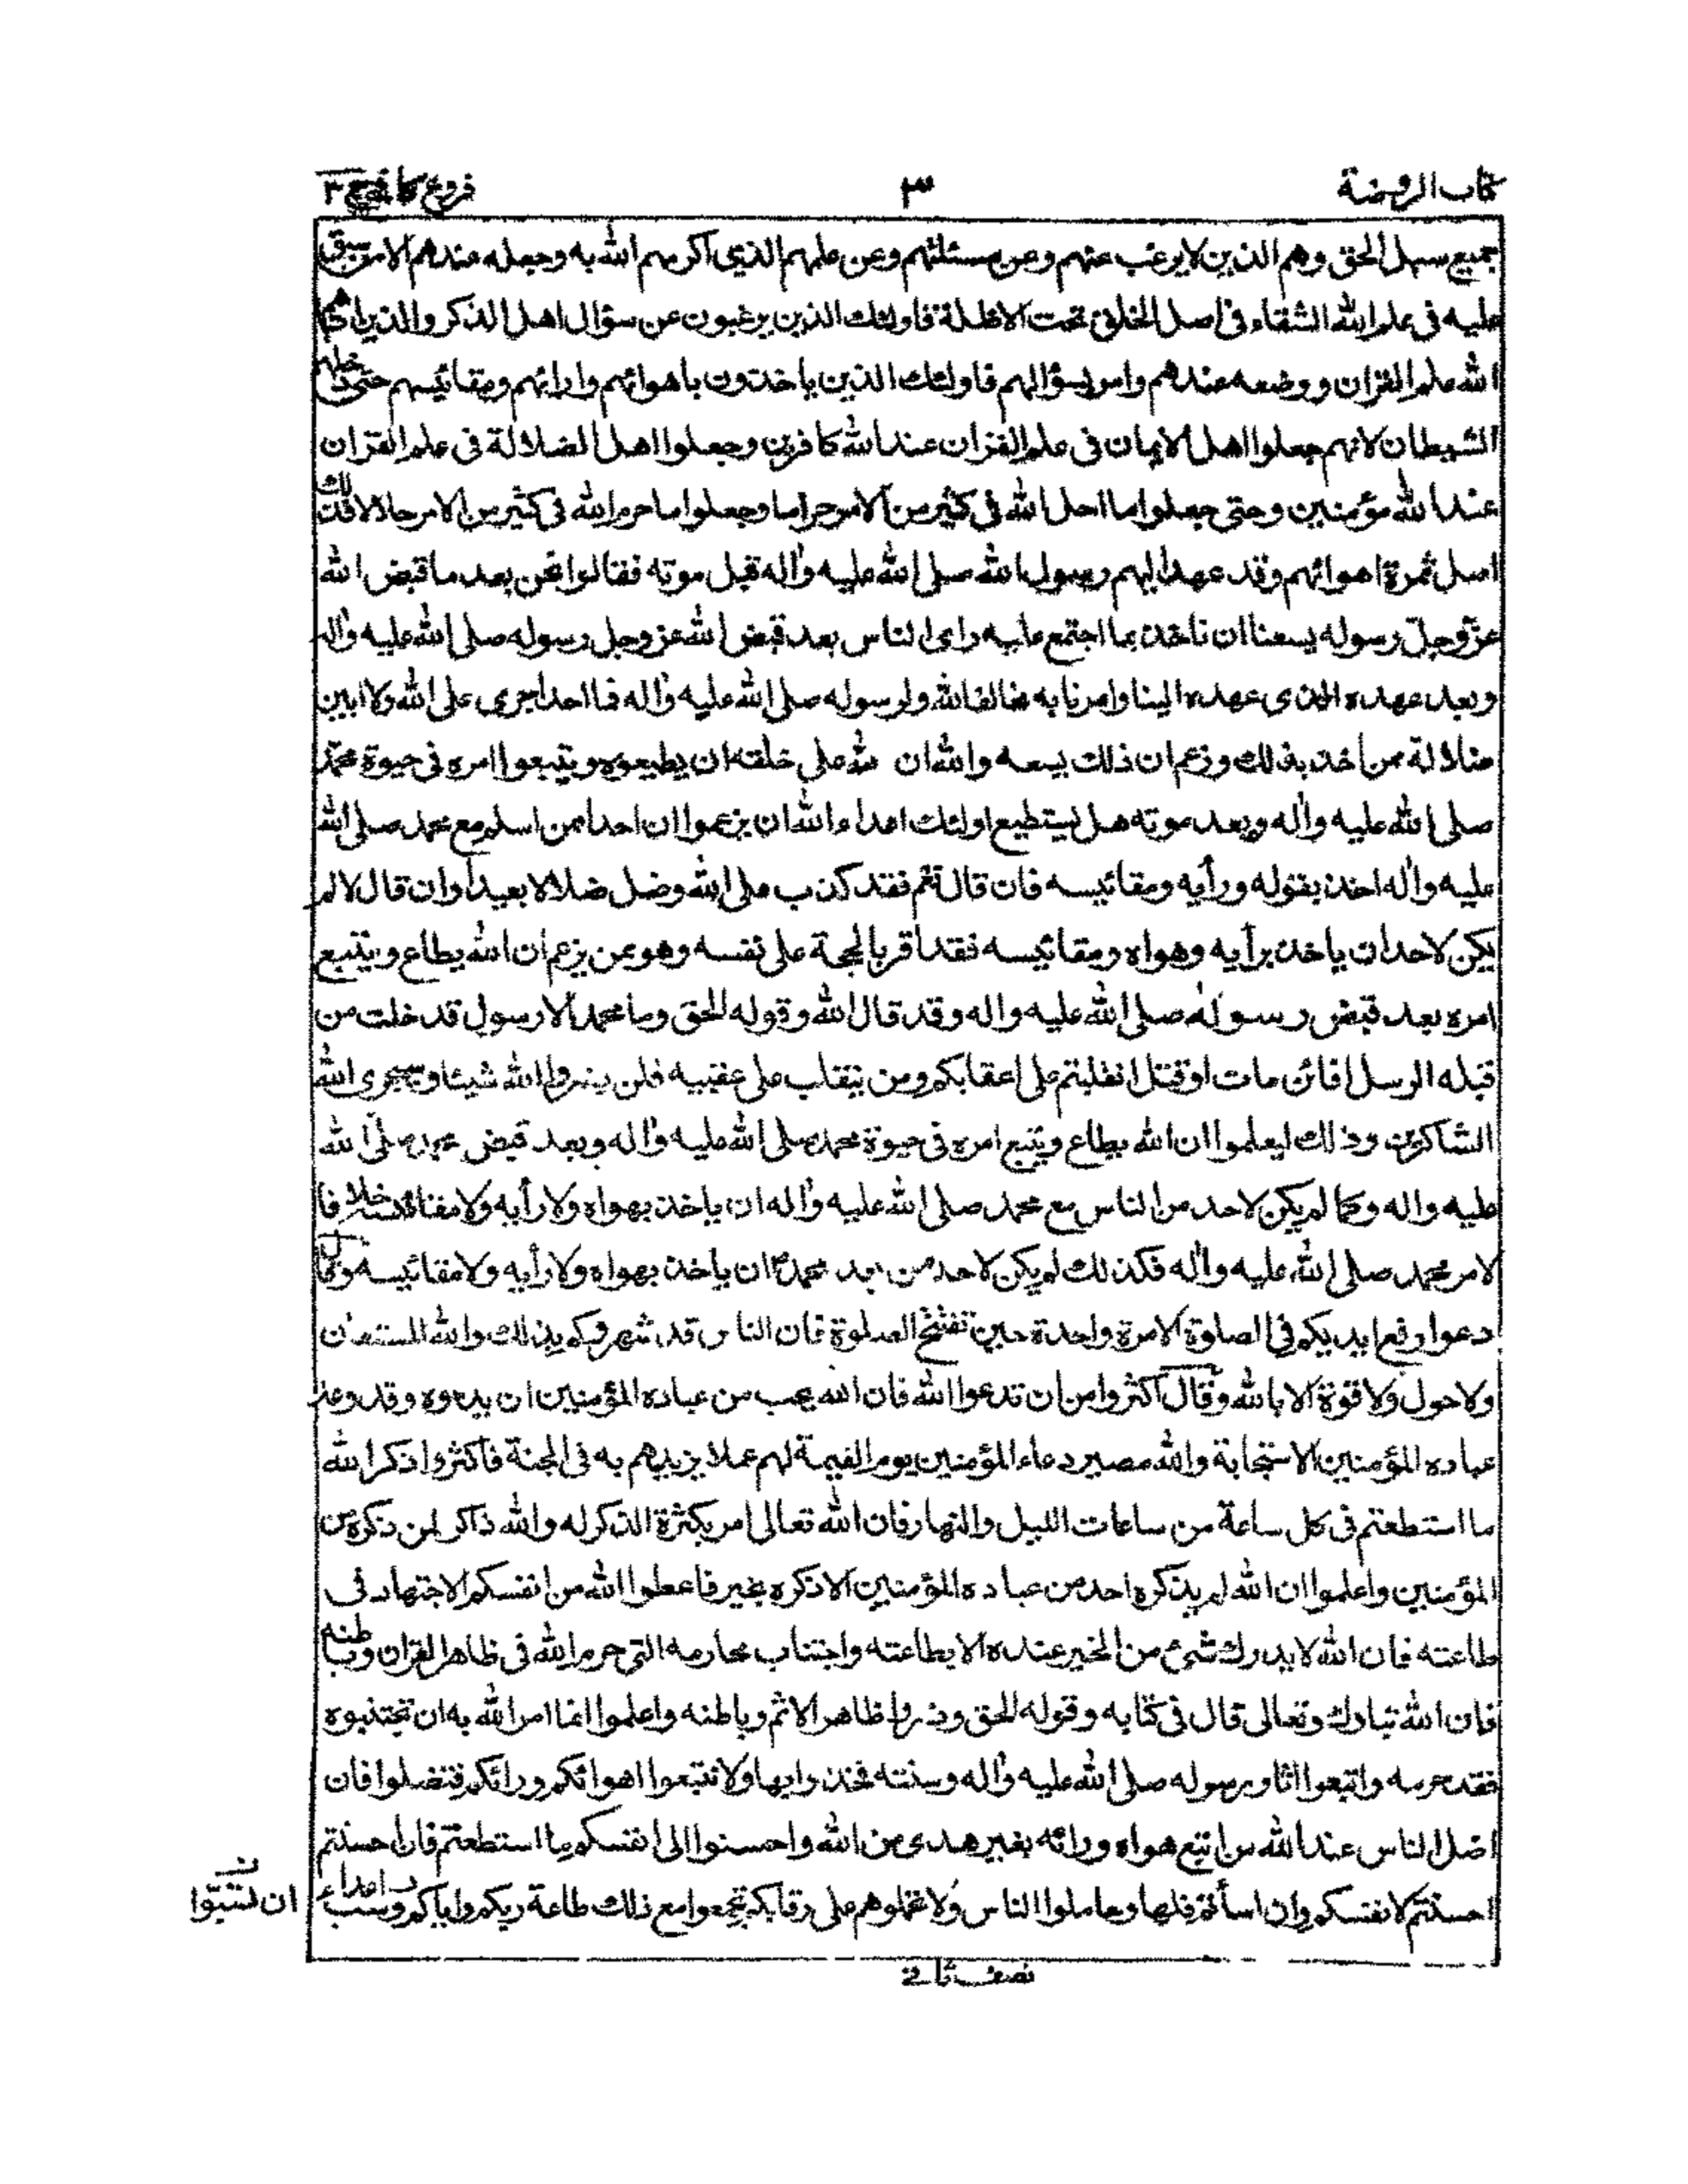 كتاب الروضة ٣ فروع كافى ج ٣
جميع سبل الحق وهم الذين لا يرغب عنهم وعن مسئلتهم وعن علمهم الذي اكرمهم الله به وجعله عندهم الا من سبق
عليه في علم الله الشقاء في اصل الخلق تحت الاظلة فاولئك الذين يرغبون عن سؤال اهل الذكر والذين اتيهم
الله علم القران ووضعه عندهم وامر بسؤالهم فاولئك الذين ياخذون باهوائهم وارائهم ومقائيسهم حتى دخلهم
الشيطان لانهم جعلوا اهل الايمان في علم القران عند الله كافرين وجعلوا اهل الضلالة في علم القران
عند الله مؤمنين وحتى جعلوا ما احل الله في كثير من الامر حراما وجعلوا ما حرم الله في كثير من الامر حلالا فذلك
اصل ثمرة اهوائهم وقد عهد اليهم رسول الله صلى الله عليه واله قبل موته فقالوا نحن بعد ما قبض الله
عز وجل رسوله يسعنا ان ناخذ بما اجتمع عليه راى الناس بعد قبض الله عز وجل رسوله صلى الله عليه واله
وبعد عهده الذى عهده الينا وامرنا به مخالفا لله ولرسوله صلى الله عليه واله فما احد اجرى على الله ولا ابين
ضلالة ممن اخذ بذلك وزعم ان ذلك يسعه والله ان لله على خلقه ان يطيعوه ويتبعوا امره في حيوة محمد
صلى الله عليه واله وبعد موته هل يستطيع اولئك اعداء الله ان يزعموا ان احدا ممن اسلم مع محمد صلى الله
عليه واله اخذ بقوله ورأيه ومقائيسه فان قال نعم فقد كذب على الله وضل ضلالا بعيدا وان قال لا لم
يكن لاحد ان ياخذ برأيه وهواه ومقائيسه فقد اقر بالحجة على نفسه وهو ممن يزعم ان الله يطاع ويتبع
امره بعد قبض رسول الله صلى الله عليه واله وقد قال الله وقوله الحق وما محمد الا رسول قد خلت من
قبله الرسل افائن مات او قتل انقلبتم على اعقابكم ومن ينقلب على عقبيه فلن يضر الله شيئا وسيجزى الله
الشاكرين وذلك ليعلموا ان الله يطاع ويتبع امره في حيوة محمد صلى الله عليه واله وبعد قبض محمد صلى الله
عليه واله وكما لم يكن لاحد من الناس مع محمد صلى الله عليه واله ان ياخذ بهواه ولا رأيه ولا مقائيسه خلافا
لامر محمد صلى الله عليه واله فكذلك لم يكن لاحد من بعد محمد ان ياخذ بهواه ولا رأيه ولا مقائيسه وقال
دعوا رفع ايديكم في الصلوة الا مرة واحدة حين تفتتح الصلوة فان الناس قد شهروكم بذلك والله المستعان
ولا حول ولا قوة الا بالله وقال اكثروا من ان تدعوا الله فان الله يحب من عباده المؤمنين ان يدعوه وقد وعد
عباده المؤمنين الاستجابة والله مصير دعاء المؤمنين يوم القيمة لهم عملا يزيدهم به في الجنة فاكثروا ذكر الله
ما استطعتم في كل ساعة من ساعات الليل والنهار فان الله تعالى امر بكثرة الذكر له والله ذاكر لمن ذكره من
المؤمنين واعلموا ان الله لم يذكره احد من عباده المؤمنين الا ذكره بخير فاعطوا الله من انفسكم الاجتهاد في
طاعته فان الله لا يدرك شئ من الخير عنده الا بطاعته واجتناب محارمه التي حرم الله في ظاهر القران وباطنه
فان الله تبارك وتعالى قال في كتابه وقوله الحق وذروا ظاهر الاثم وباطنه واعلموا انما امر الله به ان تجتنبوه
فقد حرمه واتبعوا اثار رسوله صلى الله عليه واله وسنته فخذوا بها ولا تتبعوا اهوائكم ورائكم فتضلوا فان
اضل الناس عند الله من اتبع هواه ورائه بغير هدى من الله واحسنوا الى انفسكم ما استطعتم فان احسنتم
احسنتم لانفسكم وان اسأتم فلها وجاملوا الناس ولا تحملوهم على رقابكم تجمعوا مع ذلك طاعة ربكم واياكم وسب اعداء
نصف ثانى